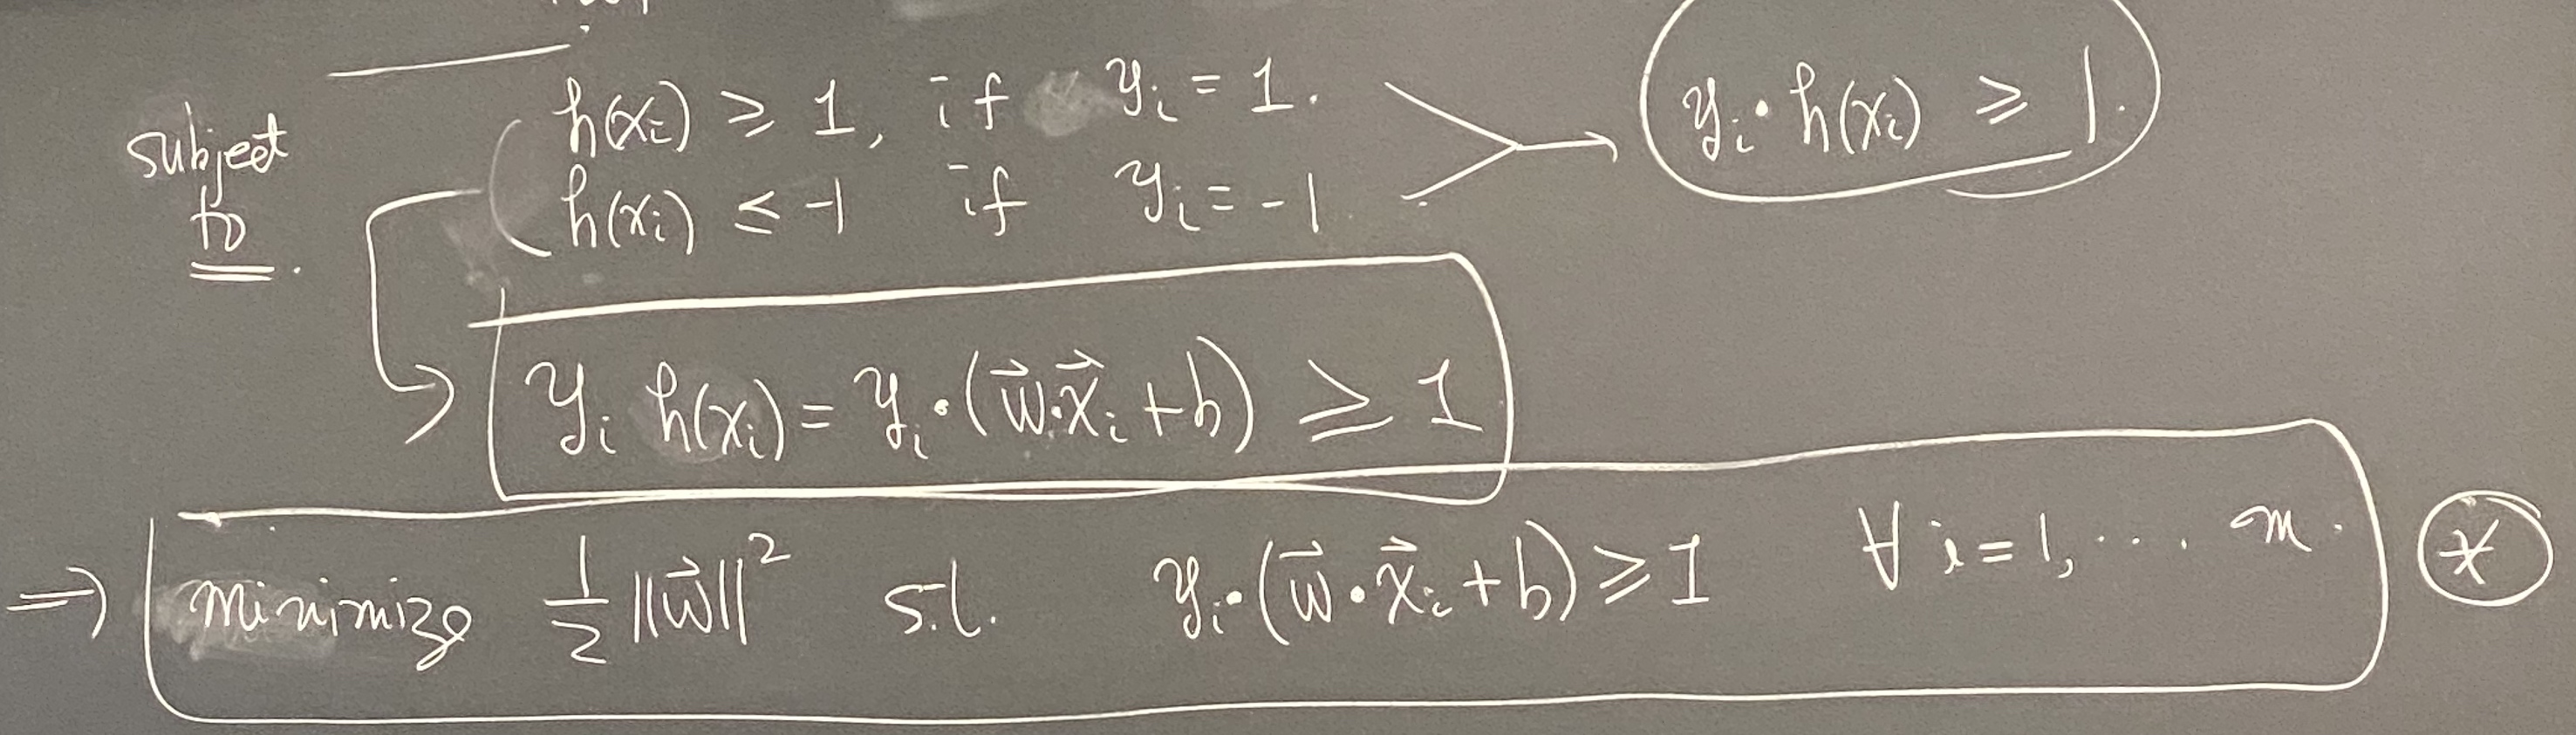 subject to.
h(xᵢ) ≥ 1, if yᵢ = 1.
h(xᵢ) ≤ -1 if yᵢ = -1
yᵢ · h(xᵢ) ≥ 1.
yᵢ h(xᵢ) = yᵢ · (w⃗·x⃗ᵢ + b) ≥ 1
⇒ minimize ½ ||w⃗||² s.t. yᵢ · (w⃗ · x⃗ᵢ + b) ≥ 1 ∀ i = 1, ... m. *